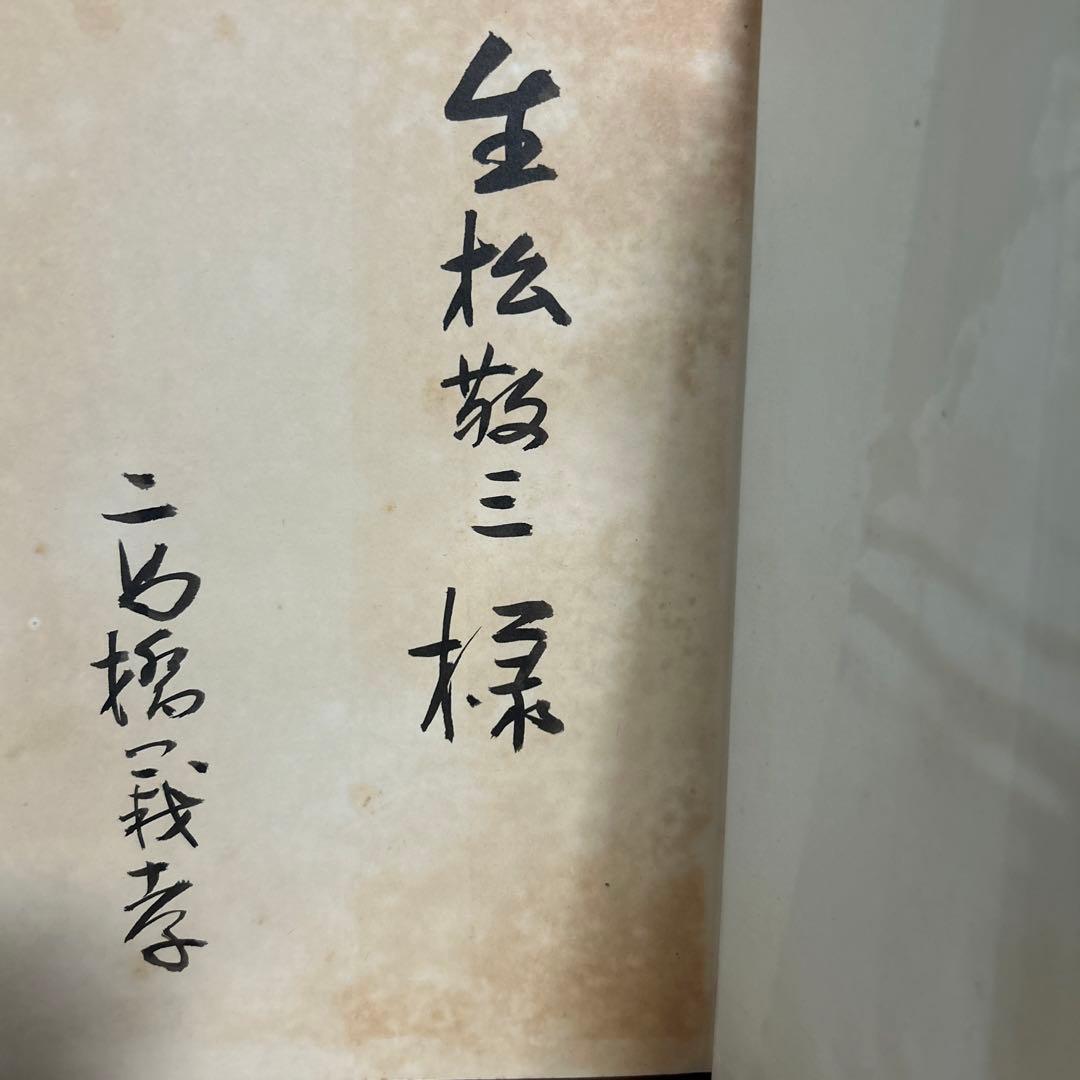 生松敬三 様
高橋義孝